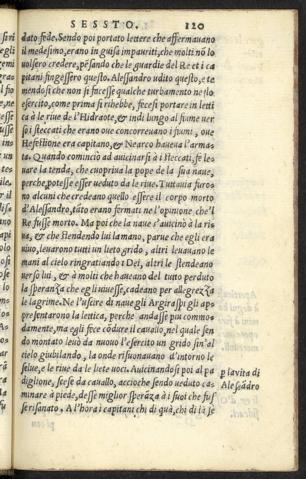 SESSTO. 120
dato fede. Sendo poi portato lettere che affermauano
il medesimo, erano in guisa impauriti, che molti nõ lo
uolsero credere, pẽsando che le guardie del Re et i ca
pitani fingessero questo. Alessandro udito questo, e te
mendosi che non si facesse qualche turbamento ne lo
esercito, come prima si rihebbe, fecesi portare in letti
ca à le riue de l'Hidraote, & indi lungo al fiume uer
so i steccati che erano oue concorreuano i fiumi, oue
Hefestione era capitano, & Nearco haueua l'arma-
ta. Quando cominciò ad auicinarsi à i steccati, fe le-
uare la tenda, che cuopriua la pope de la sua naue,
perche, potesse esser ueduto da le riue. Tuttauia furo-
no alcuni che credeano quello essere il corpo morto
d'Alessandro, tãto erano fermati ne l'opinione, che'l
Re fusse morto. Ma poi che la naue s'auicinò à la ri
ua, & che stendendo lui la mano, parue che egli era
uiuo, leuarono tutti un lieto grido, altri leuauano le
mani al cielo ringratiando i Dei, altri le stendeano
uerso lui, & à molti che haueano del tutto perduto
la sperãza che egli uiuesse, cadeano per allegrezza
le lagrime. Ne l'uscire di naue gli Argiraspi gli ap
presentarono la lettica, perche andasse piu commo-
damente, ma egli fece cõdure il cauallo, nel quale sen
do montato leuò da nuouo l'esercito un grido sin'al
cielo giubilando, la onde risuonauano d'intorno le
selue, e le riue da le liete uoci. Auicinandosi poi al pa
diglione, scese da cauallo, accioche sendo ueduto ca-
minare à piede, desse miglior sperãza à i suoi che fus
se risanato. A l'hora i capitani chi di quà, chi di là se
p la uita di
Alessãdro